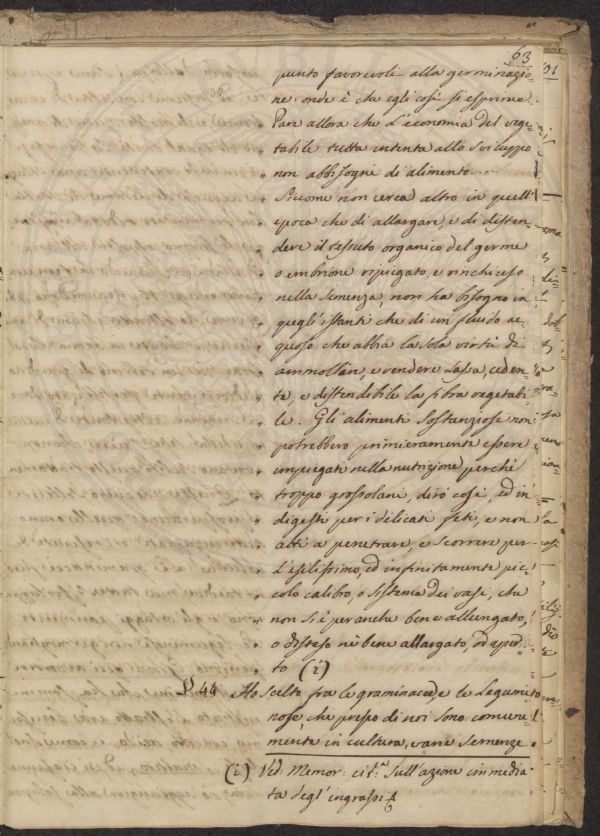 63
punto favorevoli alla germinazio=
ne: onde è che egli così si esprime.
" Pare allora che l'economia del vege=
" tabile tutta intenta allo sviluppo
" non abbisogni di alimento....
" Siccome non cerca altro in quell'
" epoca che di allargare, e di disten=
" dere il tessuto organico del germe
" o embrione ripiegato, e rinchiuso
" nella semenza, non ha bisogno in
" quegl'istanti che di un fluido ac=
" quoso che abbia la sola virtù di
" ammollire, e rendere lassa, ceden=
" te, e distendibile la fibra vegetabi=
" le. Gli alimenti sostanziosi non
" potrebbero primieramente essere
" impiegati nella nutrizione perchè
" troppo grossolani, dirò così, ed in=
" digesti per i delicati feti, e non
" atti a penetrare, e scorrere per
" l'esilissimo, ed infinitamente pic=
" colo calibro, o sistema dei vasi, che
" non si è per anche bene allungato,
" o disteso nè bene allargato, od aper=
" to (i)
§ 44 Ho scelto fra le graminacee, e le legumi=
nose, che presso di noi sono comune=
mente in cultura, varie semenze
(i) Ved: Memor: cit.ª sull'azione immedia=
ta degl'ingrassi